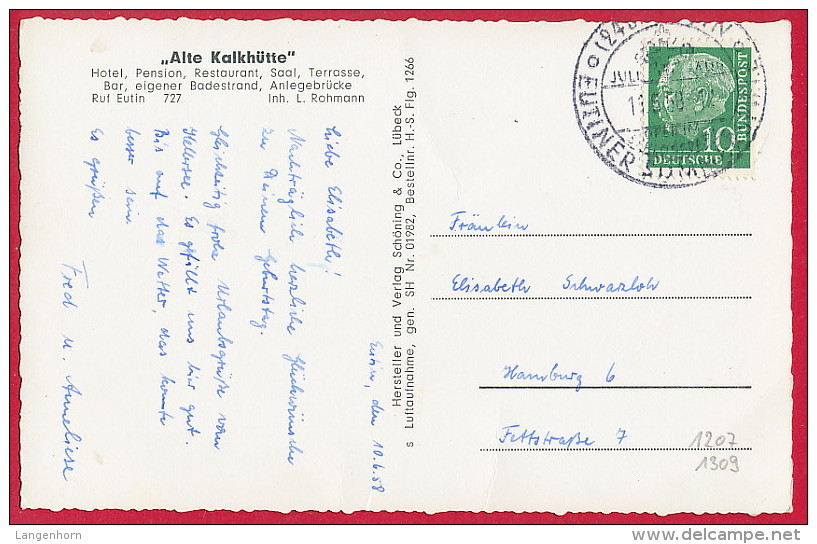 „Alte Kalkhütte"
Hotel, Pension, Restaurant, Saal, Terrasse,
Bar, eigener Badestrand, Anlegebrücke
Ruf Eutin 727 Inh. L. Rohmann
Eutin, den 10.6.58
Liebe Elisabeth!
Nachträglich herzliche Glückwünsche
zu Deinem Geburtstag.
Gleichzeitig frohe Urlaubsgrüße vom
Kellersee. Es gefällt uns hier gut.
Bis auf das Wetter, das könnte
besser sein.
Es grüßen
Fred u. Anneliese
Hersteller und Verlag Schöning & Co., Lübeck
s Luftaufnahme, gen. SH Nr. 01982, Bestellnr. H.-S. Flg. 1266
EUTINER SOMMER
10
DEUTSCHE
BUNDESPOST
Fräulein
Elisabeth Schwarzloh
Hamburg 6
Fettstraße 7
1207
1309
Langenhorn
delcampe.net